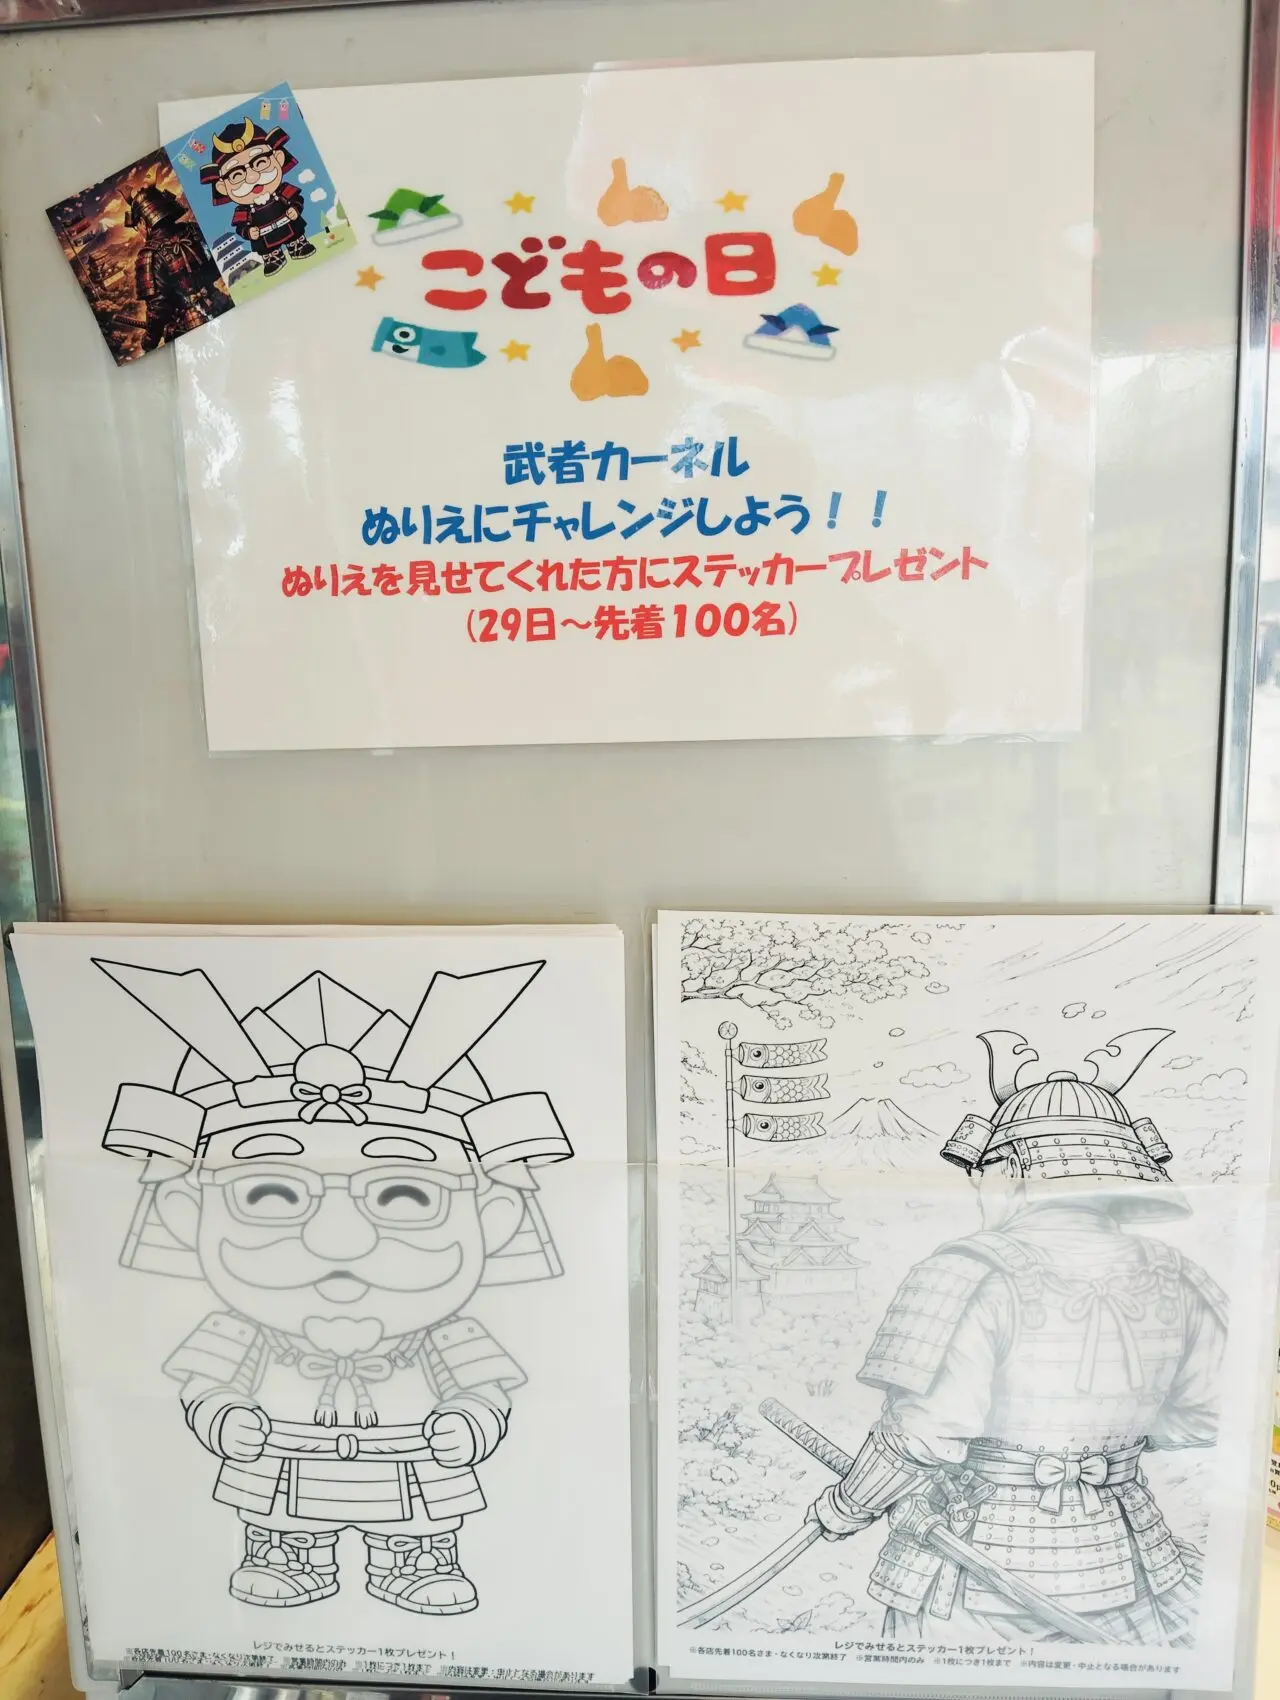 こどもの日
武者カーネル
ぬりえにチャレンジしよう！！
ぬりえを見せてくれた方にステッカープレゼント
(29日～先着100名)
レジでみせるとステッカー1枚プレゼント！
※各店先着100名さま・なくなり次第終了 ※営業時間内のみ ※1枚につき1枚まで ※内容は変更・中止となる場合があります
レジでみせるとステッカー1枚プレゼント！
※各店先着100名さま・なくなり次第終了 ※営業時間内のみ ※1枚につき1枚まで ※内容は変更・中止となる場合があります